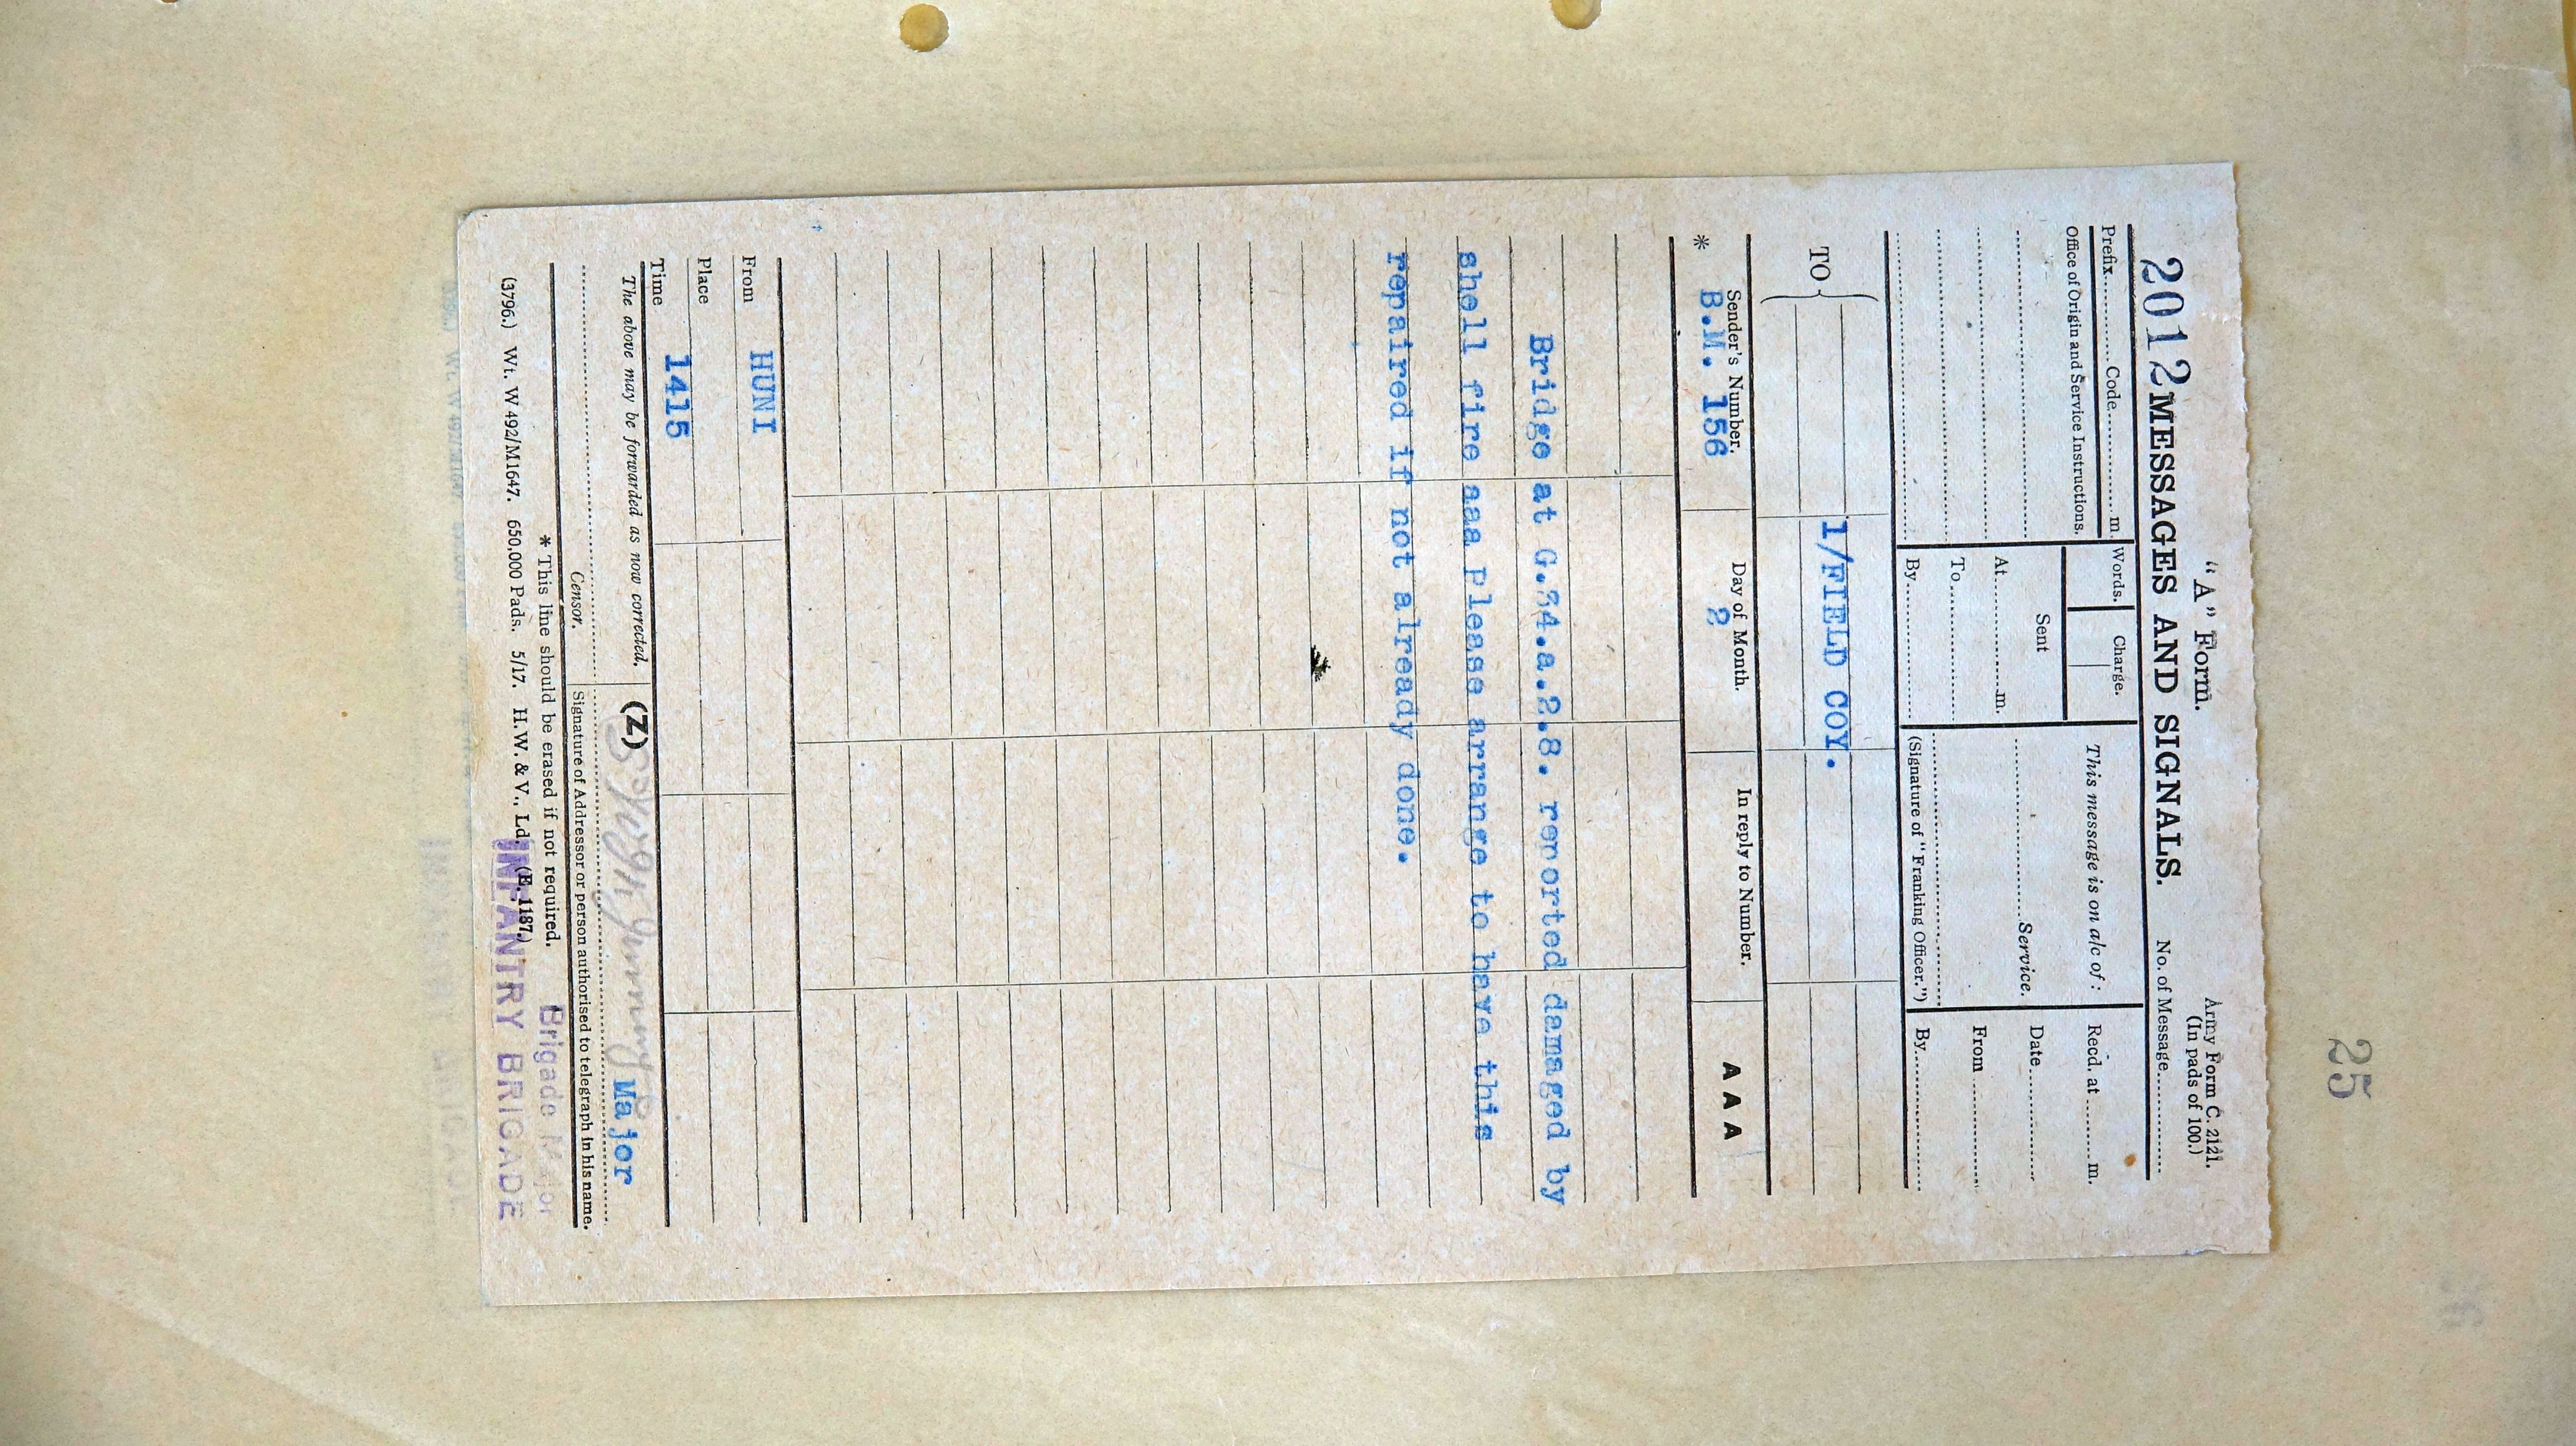 25
"A" Form.
Army Form C. 2121.
(In pads of 100.)
2012 MESSAGES AND SIGNALS. No. of Message
Prefix Code m. Words. Charge. This message is on a/c of: Recd. at m.
Office of Origin and Service Instructions.
Sent Service. Date
At m. From
To
By (Signature of "Franking Officer.") By
TO 1/FIELD COY.
Sender's Number. Day of Month. In reply to Number. AAA
* B.M. 156 2
Bridge at G.34.a.2.8. reported damaged by
shell fire aaa Please arrange to have this
repaired if not already done.
From HUNI
Place
Time 1415
The above may be forwarded as now corrected. (Z) Major
Censor. Signature of Addressor or person authorised to telegraph in his name.
* This line should be erased if not required. Brigade Major
(3796.) Wt. W 492/M1647. 650,000 Pads. 5/17. H.W. & V., Ld. (E. 1187.)
INFANTRY BRIGADE